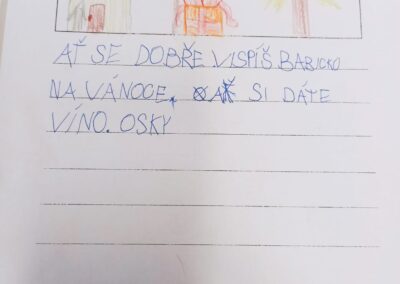 AŤ SE DOBŘE VISPÍŠ BABICKO
NA VÁNOCE, AŤ SI DÁTE
VÍNO. OSKY